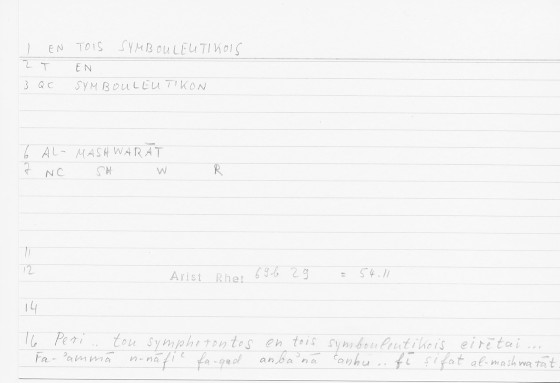 1 EN TOIS SYMBOULEUTIKOIS
2 T EN
3 QC SYMBOULEUTIKON
6 AL- MASHWARĀT
7 NC SH W R
11
12 Arist Rhet 69b 29 = 54.11
14
16 Peri .. tou sympherontos en tois symbouleutikois eirētai ...
Fa-'ammā n-nāfiʿ fa-qad anba'nā ʿanhu .. fī ṣifat al-mashwarāt